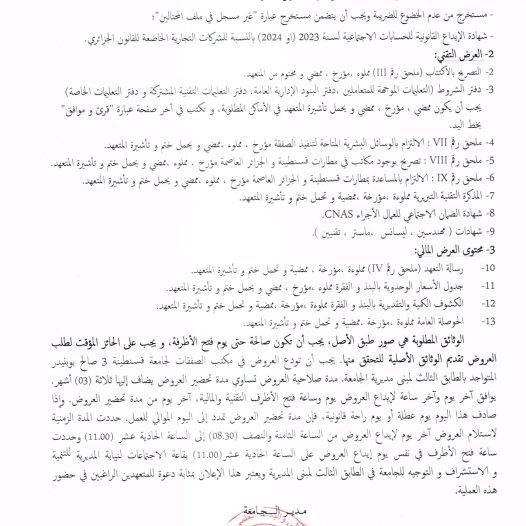 - مستخرج من عدم الخضوع للضريبة ويجب أن يتضمن مستخرج عبارة "غير مسجل في ملف المحتالين"؛
- شهادة الإيداع القانونية للحسابات الاجتماعية لسنة 2023 (او 2024) بالنسبة للشركات التجارية الخاضعة للقانون الجزائري.
2- العرض التقني:
2- التصريح بالاكتتاب (ملحق رقم III) مملوء ،مؤرخ ، ممضي و مختوم من المتعهد.
3- دفتر الشروط (التعليمات الموجهة للمتعاملين ،دفتر البنود الإدارية العامة، دفتر التعليمات التقنية المشتركة و دفتر التعليمات الخاصة)
يجب أن يكون ممضي ، مؤرخ ، ممضي و يحمل ختم و تأشيرة المتعهد في الأماكن المطلوبة، و تكتب في آخر صفحة عبارة "قرئ و موافق"
بخط اليد.
4- ملحق رقم VII : الالتزام بالوسائل البشرية المتاحة لتنفيذ الصفقة مؤرخ ، مملوء ،ممضي و يحمل ختم و تأشيرة المتعهد.
5- ملحق رقم VIII : تصريح بوجود مكاتب في مطارات قسنطينة و الجزائر العاصمة مؤرخ ، مملوء ،ممضي و يحمل ختم و تأشيرة المتعهد.
6- ملحق رقم IX : الالتزام بالمساعدة بمطارات قسنطينة و الجزائر العاصمة مؤرخ ، مملوء ،ممضي و يحمل ختم و تأشيرة المتعهد.
7- المذكرة التقنية التبريرية مملوءة ،مؤرخة ،ممضية و تحمل ختم و تأشيرة المتعهد.
8- شهادة الضمان الاجتماعي للعمال الأجراء CNAS.
9- شهادات ( مهندسين ، ليسانس ،ماستر ، تقنيين ).
3- محتوى العرض المالي:
10- رسالة التعهد (ملحق رقم IV) مملوءة ،مؤرخة ، ممضية و تحمل ختم و تأشيرة المتعهد.
11- جدول الأسعار الوحدوية بالبند و الفقرة مملوء ،مؤرخ ، ممضي و يحمل ختم و تأشيرة المتعهد.
12- الكشوف الكمية والتقديرية بالبند و الفقرة مملوءة ،مؤرخة ،ممضية و تحمل ختم و تأشيرة المتعهد.
13- الحوصلة العامة مملوءة ،مؤرخة ،ممضية و تحمل ختم و تأشيرة المتعهد.
الوثائق المطلوبة هي صور طبق الأصل، يجب أن تكون صالحة حتى يوم فتح الأظرفة، و يجب على الحائز المؤقت لطلب
العروض تقديم الوثائق الأصلية للتحقق منها. يجب أن تودع العروض في مكتب الصفقات لجامعة قسنطينة 3 صالح بوبنيدر
المتواجد بالطابق الثالث لمبنى مديرية الجامعة. مدة صلاحية العروض تساوي مدة تحضير العروض يضاف إليها ثلاثة (03) أشهر.
يوافق آخر يوم وآخر ساعة لإيداع العروض يوم وساعة فتح الأظرف التقنية والمالية، آخر يوم من مدة تحضير العروض. وإذا
صادف هذا اليوم يوم عطلة أو يوم راحة قانونية، فإن مدة تحضير العروض تمدد إلى اليوم الموالي للعمل. حددت المدة الزمنية
لاستلام العروض آخر يوم لإيداع العروض من الساعة الثامنة والنصف (08.30) إلى الساعة الحادية عشر (11.00) وحددت
ساعة فتح الأظرف في نفس يوم إيداع العروض على الساعة الحادية عشر (11.00) بقاعة الاجتماعات لنيابة المديرية للتنمية
و الاستشراف و التوجيه للجامعة في الطابق الثالث لمبنى المديرية ويعتبر هذا الإعلان بمثابة دعوة للمتعهدين الراغبين في حضور
هذه العملية.
مدير الجامعة